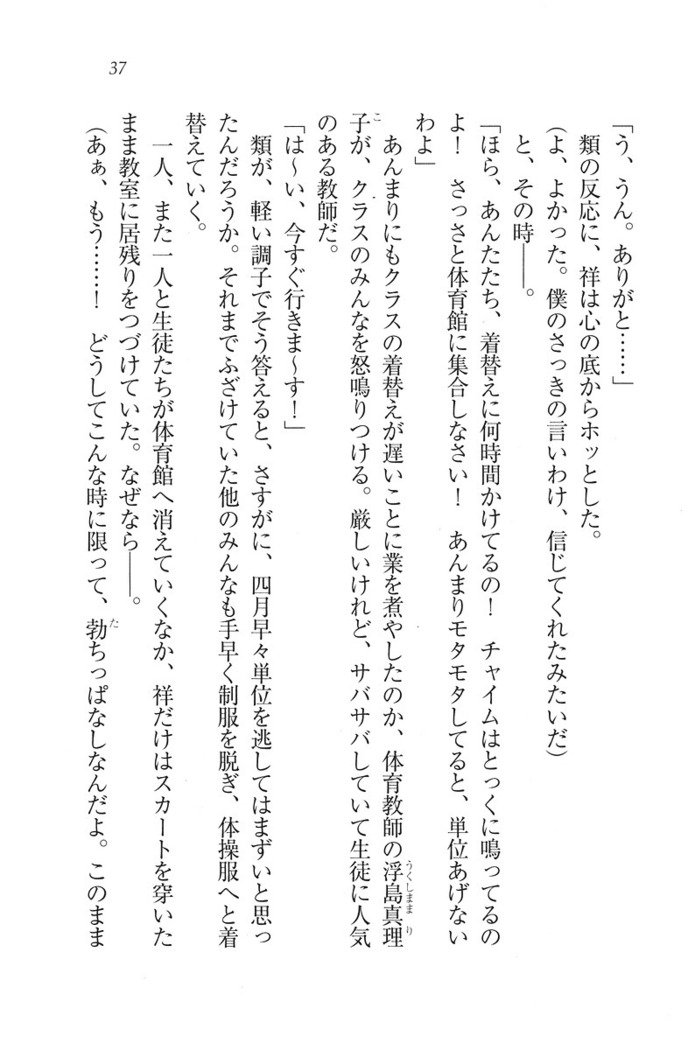 37
「う、うん。ありがと……」
類の反応に、祥は心の底からホッとした。
(よ、よかった。僕のさっきの言いわけ、信じてくれたみたいだ)
と、その時――。
「ほら、あんたたち、着替えに何時間かけてるの！　チャイムはとっくに鳴ってるの
よ！　さっさと体育館に集合しなさい！　あんまりモタモタしてると、単位あげない
わよ」
あんまりにもクラスの着替えが遅いことに業を煮やしたのか、体育教師の浮島真理
子が、クラスのみんなを怒鳴りつける。厳しいけれど、サバサバしていて生徒に人気
のある教師だ。
「は〜い、今すぐ行きま〜す！」
類が、軽い調子でそう答えると、さすがに、四月早々単位を逃してはまずいと思っ
たんだろうか。それまでふざけていた他のみんなも手早く制服を脱ぎ、体操服へと着
替えていく。
一人、また一人と生徒たちが体育館へ消えていくなか、祥だけはスカートを穿いた
まま教室に居残りをつづけていた。なぜなら――。
(あぁ、もう……！　どうしてこんな時に限って、勃ちっぱなしなんだよ。このまま